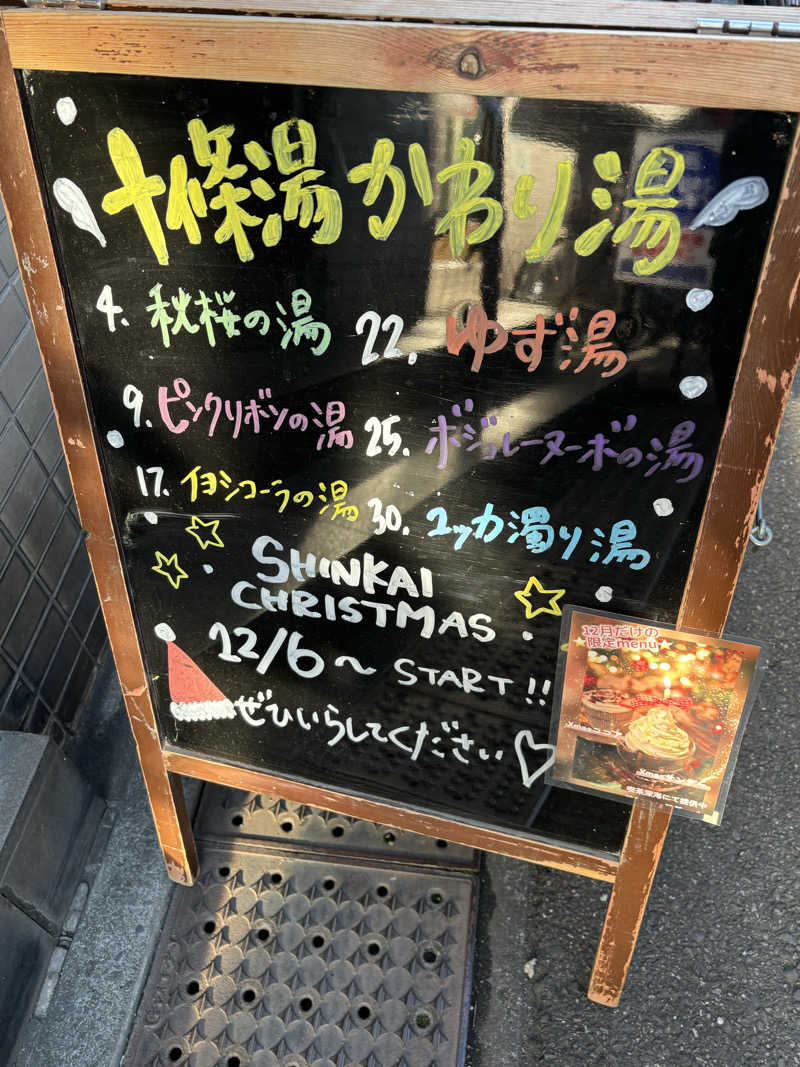 十條湯かわり湯
4. 秋桜の湯
9. ピンクリボンの湯
17. イヨシコーラの湯
22. ゆず湯
25. ボジョレーヌーボの湯
30. ユッカ濁り湯
SHINKAI
CHRISTMAS
12/6～START!!
ぜひいらしてください♡
12月だけの
限定menu
Xmasココア
喫茶深海にて提供中